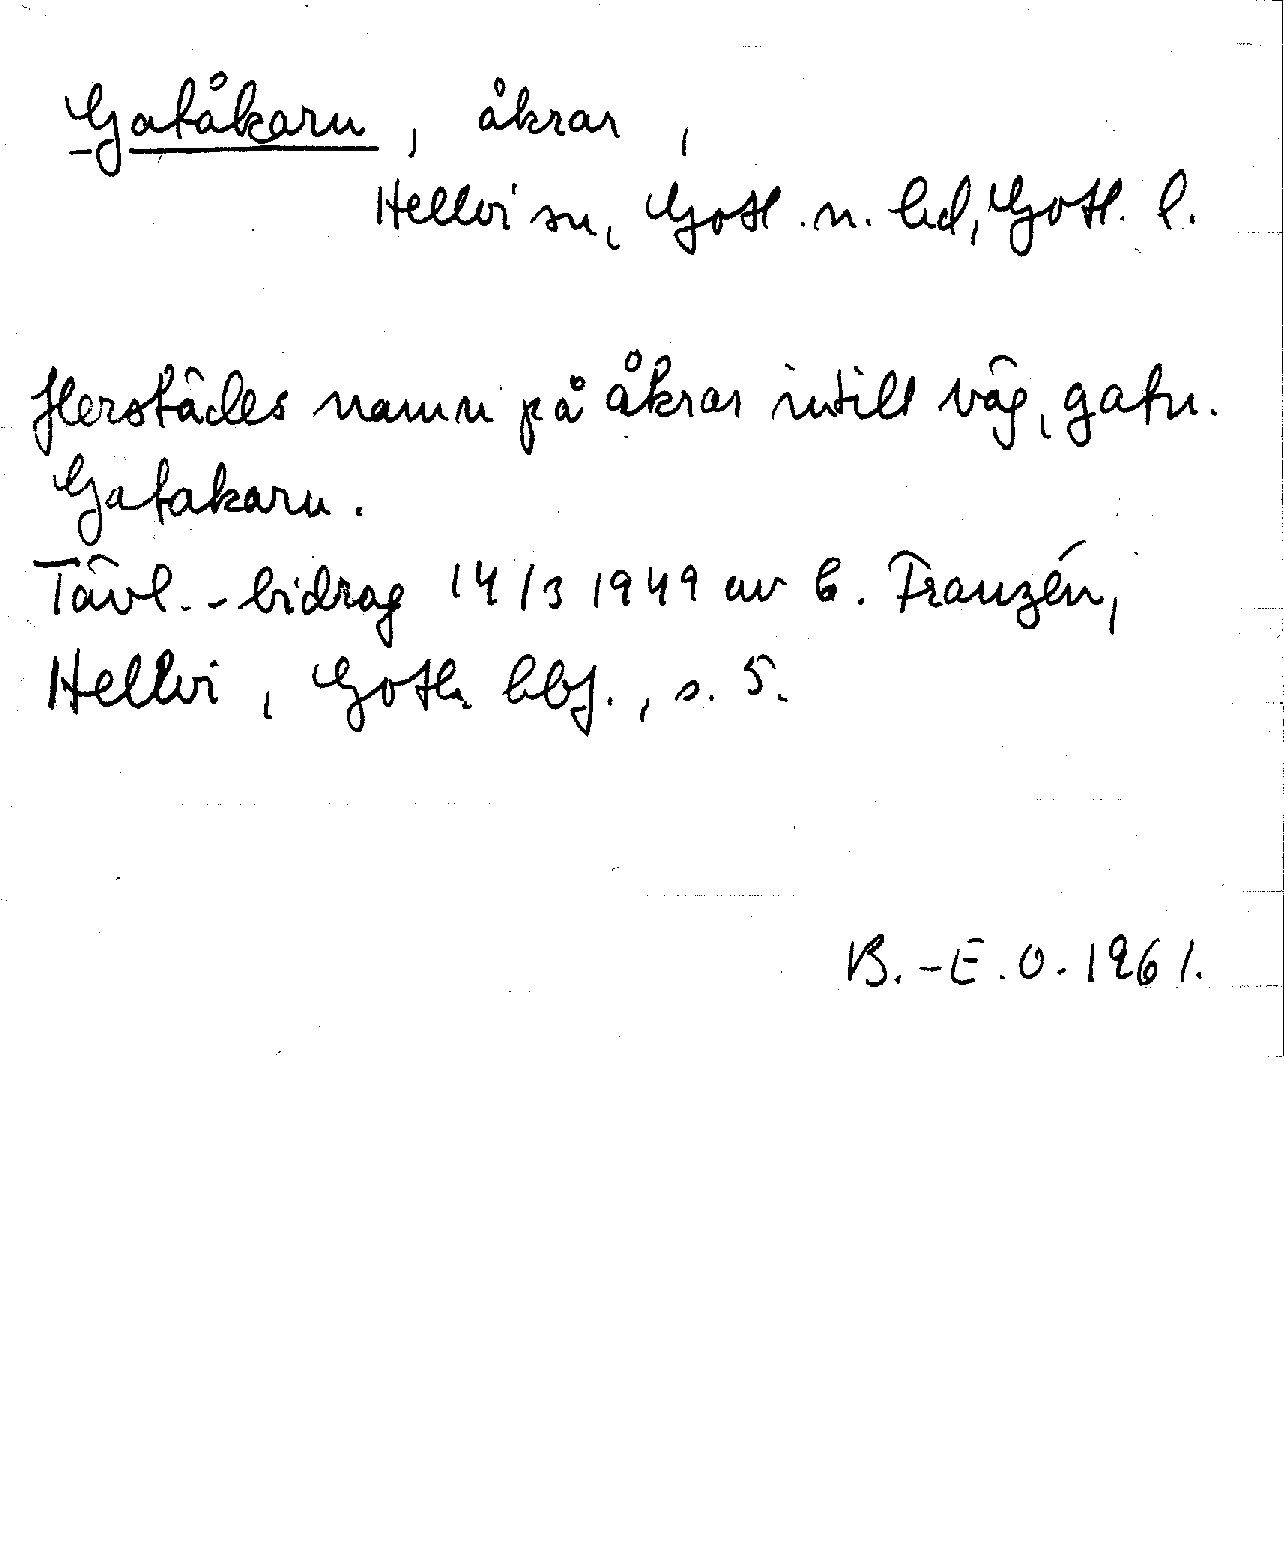 Gatåkaru, åkrar,
Hellvi sn, Gotl. n. hd, Gotl. l.
Flerstädes namn på åkrar intill väg, gatu.
Gatakaru.
Tävl.-bidrag 14/3 1949 av G. Franzén,
Hellvi, Gotl. hbf., s. 5.
B.-E. O. 1961.